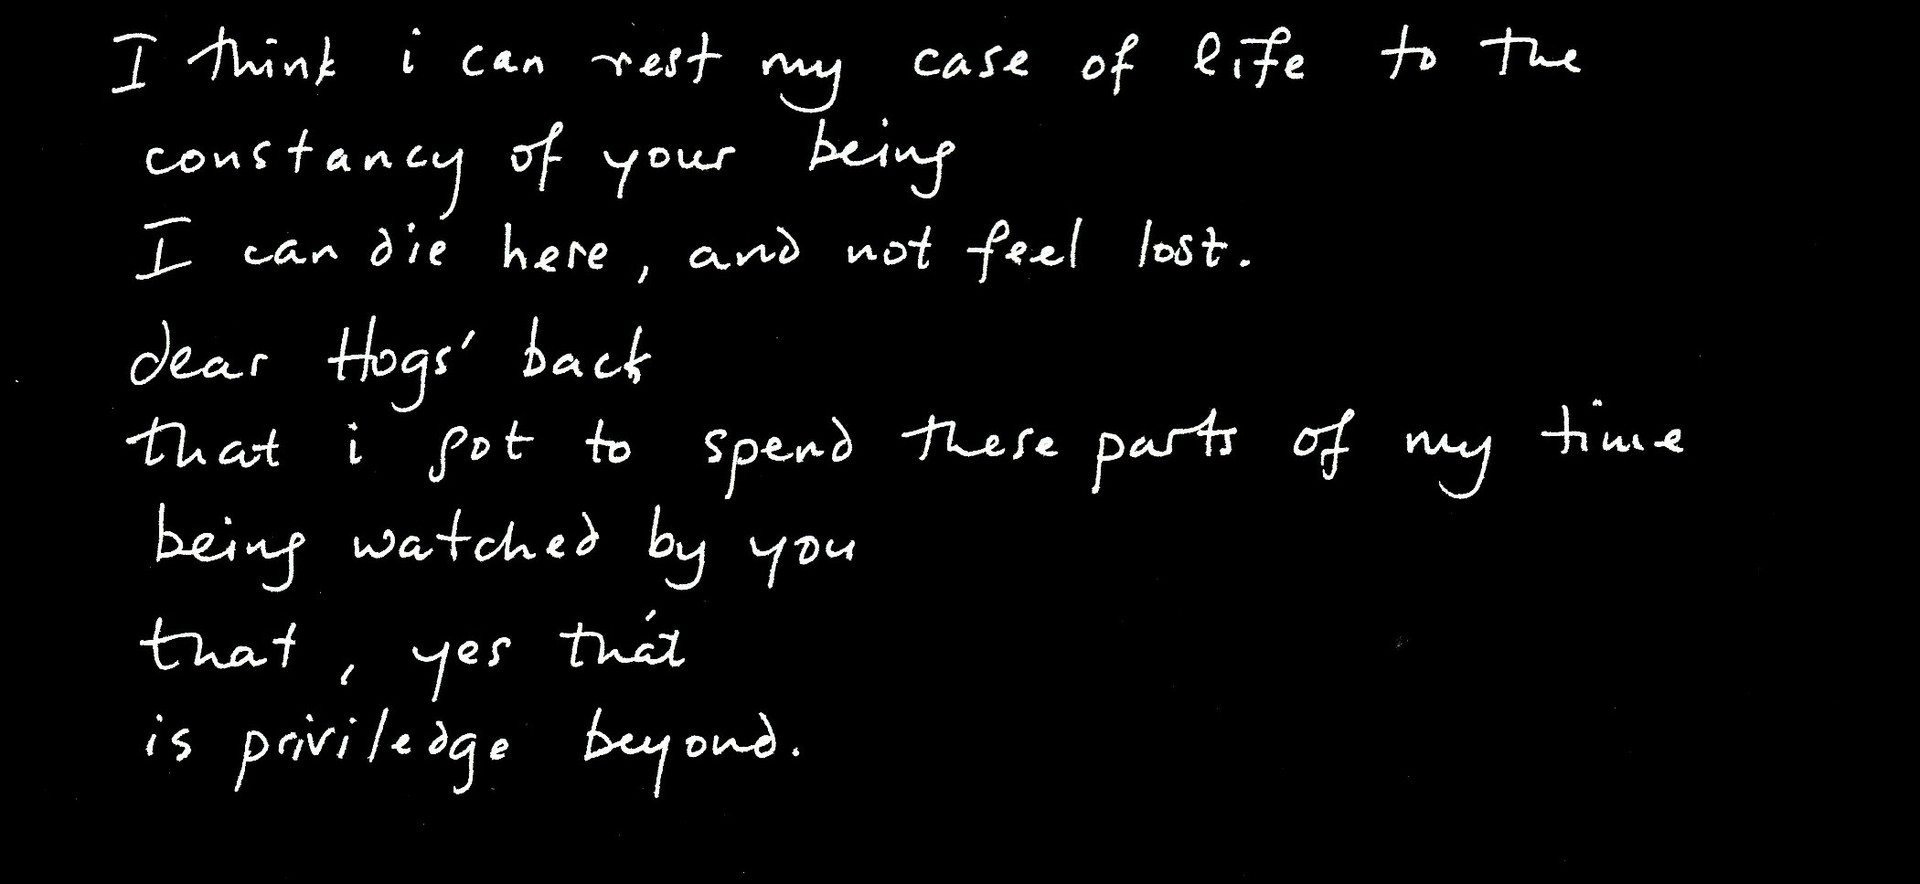 I think i can rest my case of life to the
constancy of your being
I can die here, and not feel lost.
dear Hogs' back
that i got to spend these parts of my time
being watched by you
that, yes that
is priviledge beyond.